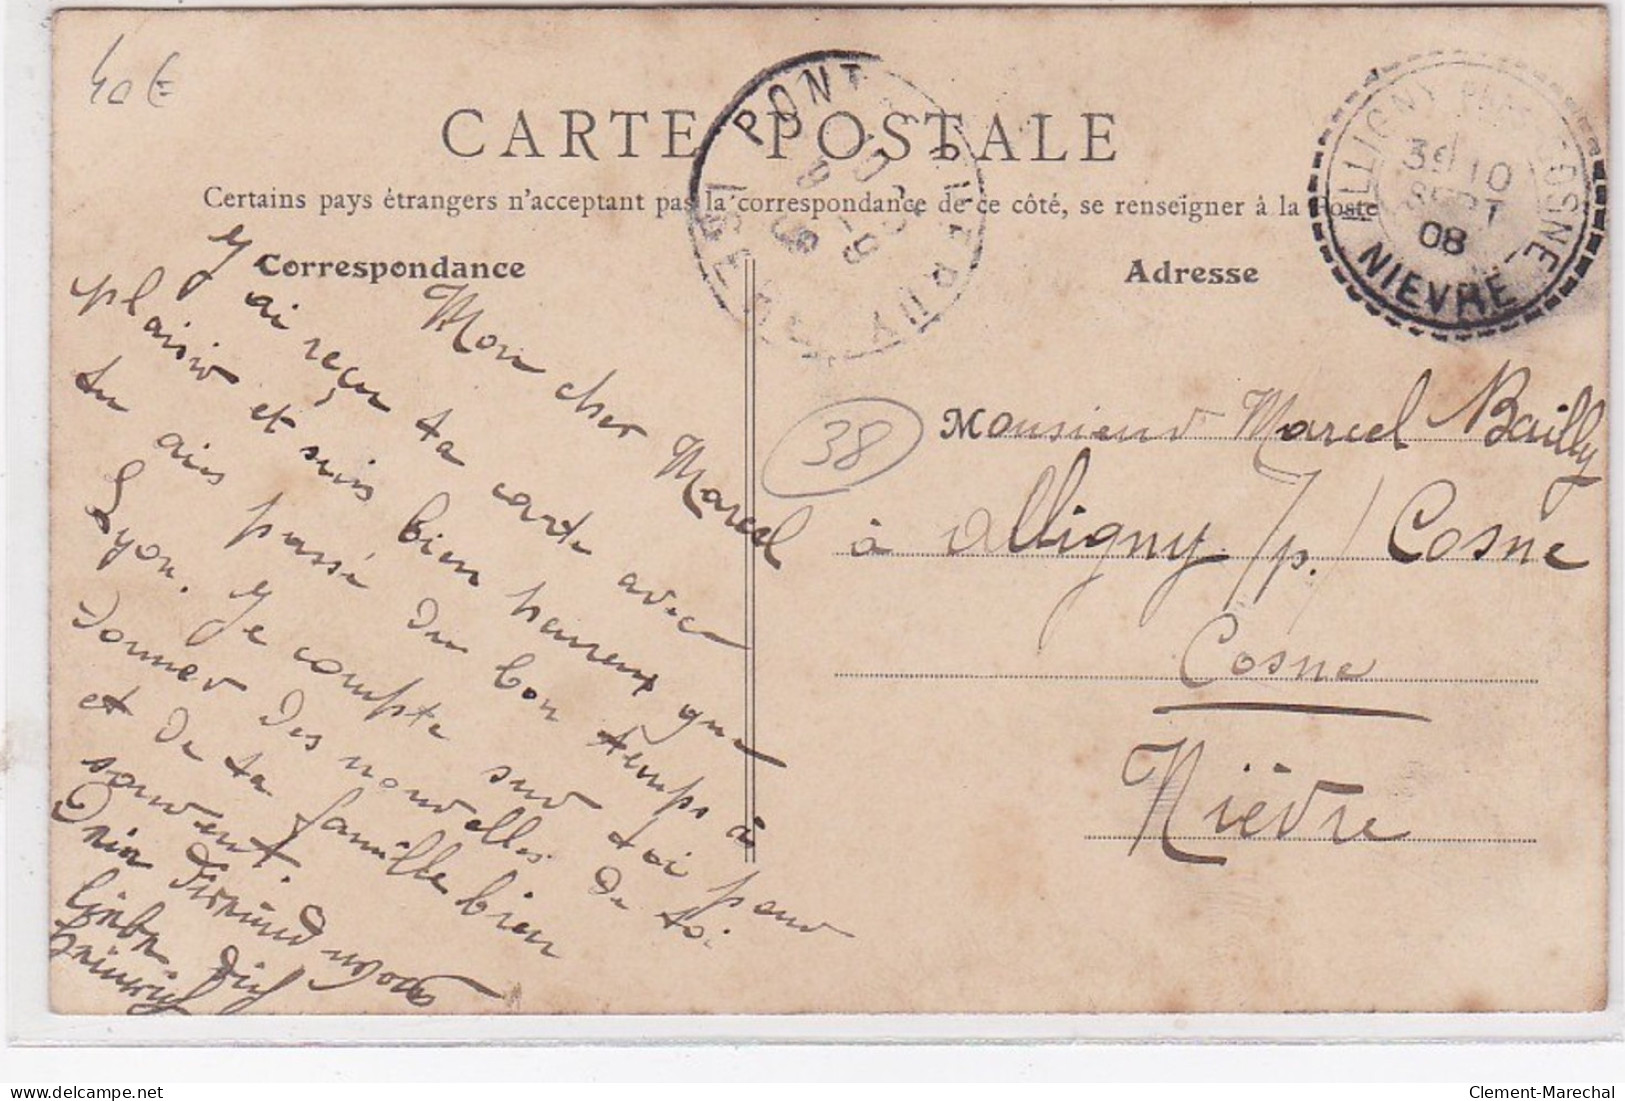 40 €
CARTE POSTALE
Certains pays étrangers n'acceptant pas la correspondance de ce côté, se renseigner à la Poste
Correspondance
Adresse
PONT
ISÈRE
ALLIGNY PRÈS COSNE
10
SEPT
08
NIEVRE
38
Mon cher Marcel
J'ai reçu ta carte avec
plaisir et suis bien heureux que
tu ais passé du bon temps à
Lyon. Je compte sur toi pour
donner des nouvelles de toi
et de ta famille bien
souvent.
Monsieur Marcel Bailly
à Alligny /p./ Cosne
Cosne
Nièvre
Clement-Marechal